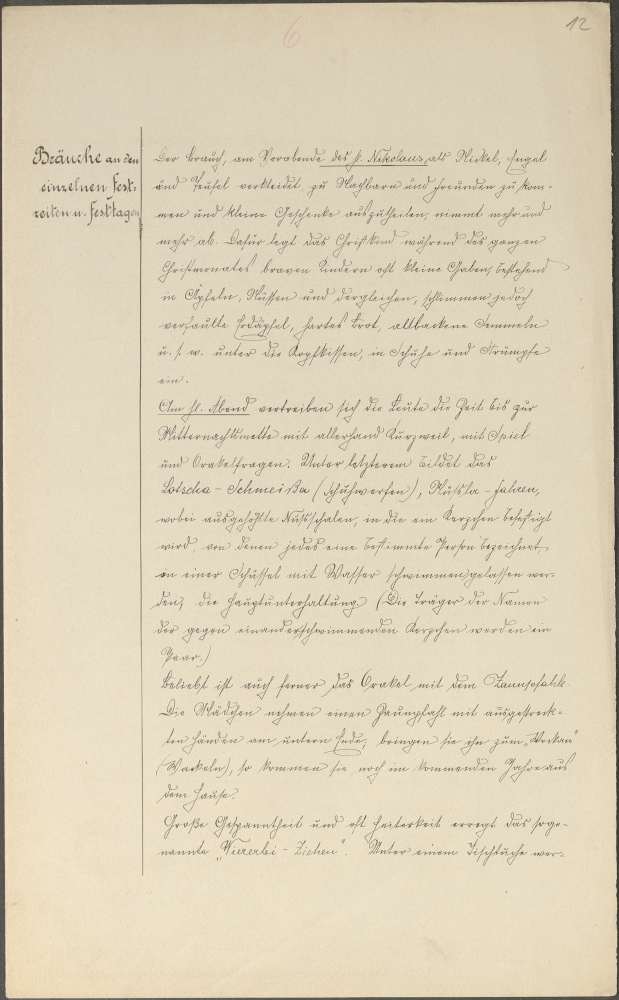 6
12
Bräuche an den
einzelnen Fest-
zeiten u. Festtagen
Der Brauch, am Vorabende des hl. Nikolaus, als Nickel, Engel
und Teufel verkleidet, zu Nachbarn und Freunden zu kom-
men und kleine Geschenke auszutheilen, nimmt mehr und
mehr ab. Dafür legt das Christkind während des ganzen
Christmonates braven Kindern oft kleine Gaben, bestehend
in Äpfeln, Nüssen und dergleichen, schlimmen jedoch
verfaulte Erdäpfel, hartes Brot, altbackene Semmeln
u. s. w. unter die Kopfkissen, in Schuhe und Strümpfe
ein.
Am hl. Abend vertreiben sich die Leute die Zeit bis zur
Mitternachtsmette mit allerhand Kurzweil, mit Spiel
und Orakelfragen. Unter letzterem bildet das
Lotscha-Schmeißa (Schuhwerfen), Nussla-fahren,
wobei ausgehöhlte Nussschalen, in die ein Kerzchen befestigt
wird, von denen jedes eine bestimmte Person bezeichnet,
in einer Schüssel mit Wasser schwimmen gelassen wer-
den, die Hauptunterhaltung (Die Träger der Namen
der gegen einander schwimmenden Kerzchen werden ein
Paar.)
Beliebt ist auch ferner das Orakel mit dem Zaunpfahle.
Die Mädchen nehmen einen Zaunpfahl mit ausgestreck-
ten Händen am untern Ende, bringen sie ihn zum "Wockan"
(Wackeln), so kommen sie noch im kommenden Jahre aus
dem Hause.
Große Gespanntheit und oft Heiterkeit erregt das soge-
nannte - Ziehen". Unter einem Tischtuche wer-